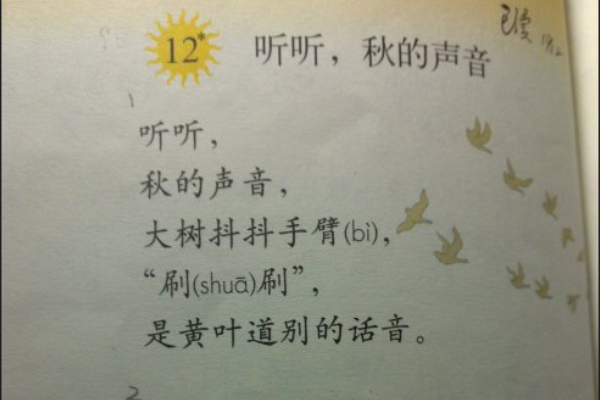 12* 听听，秋的声音
已读
1
听听，
秋的声音，
大树抖抖手臂(bì)，
“刷(shuā)刷”，
是黄叶道别的话音。
2